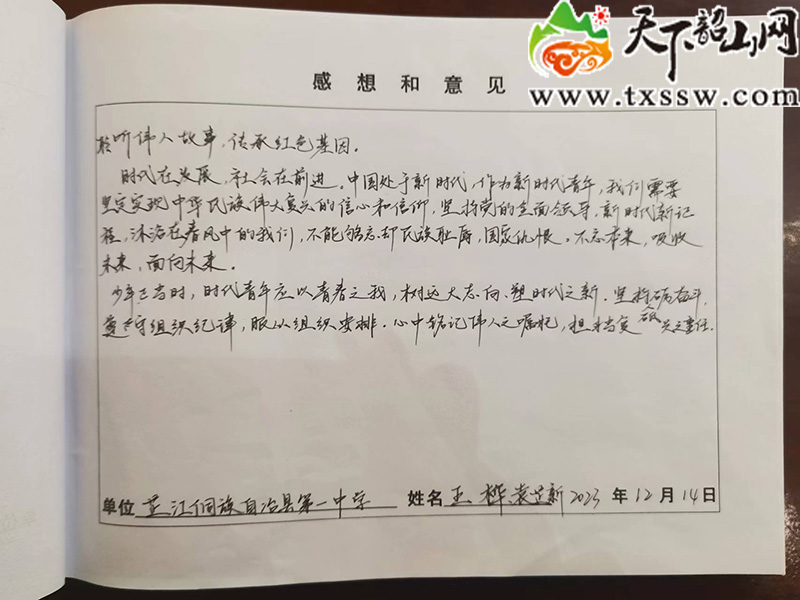 天下韶山网
www.txssw.com
感想和意见
聆听伟人故事，传承红色基因。
时代在发展，社会在前进。中国处于新时代，作为新时代青年，我们需要
坚定实现中华民族伟大复兴的信心和信仰，坚持党的全面领导，新时代新征
程，沐浴在春风中的我们，不能够忘却民族耻辱，国家仇恨。不忘本来，吸收
未来，面向未来。
少年正当时，时代青年应以青春之我，树远大志向，塑时代之新。坚持砥砺奋斗，
遵守组织纪律，服从组织安排。心中铭记伟人之嘱托，担当复兴之重任。
单位 芷江侗族自治县第一中学 姓名 王桦 袁芷新 2023 年 12 月 14 日